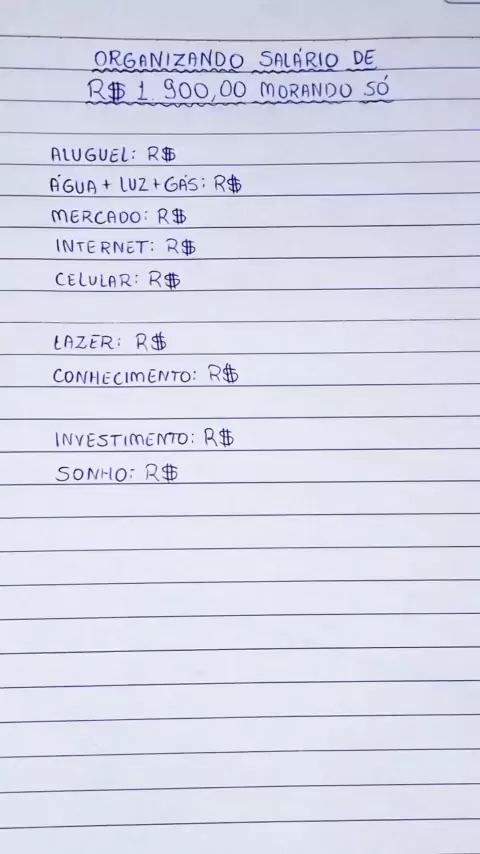 ORGANIZANDO SALÁRIO DE
R$ 1.900,00 MORANDO SÓ
ALUGUEL: R$
ÁGUA + LUZ + GÁS: R$
MERCADO: R$
INTERNET: R$
CELULAR: R$
LAZER: R$
CONHECIMENTO: R$
INVESTIMENTO: R$
SONHO: R$